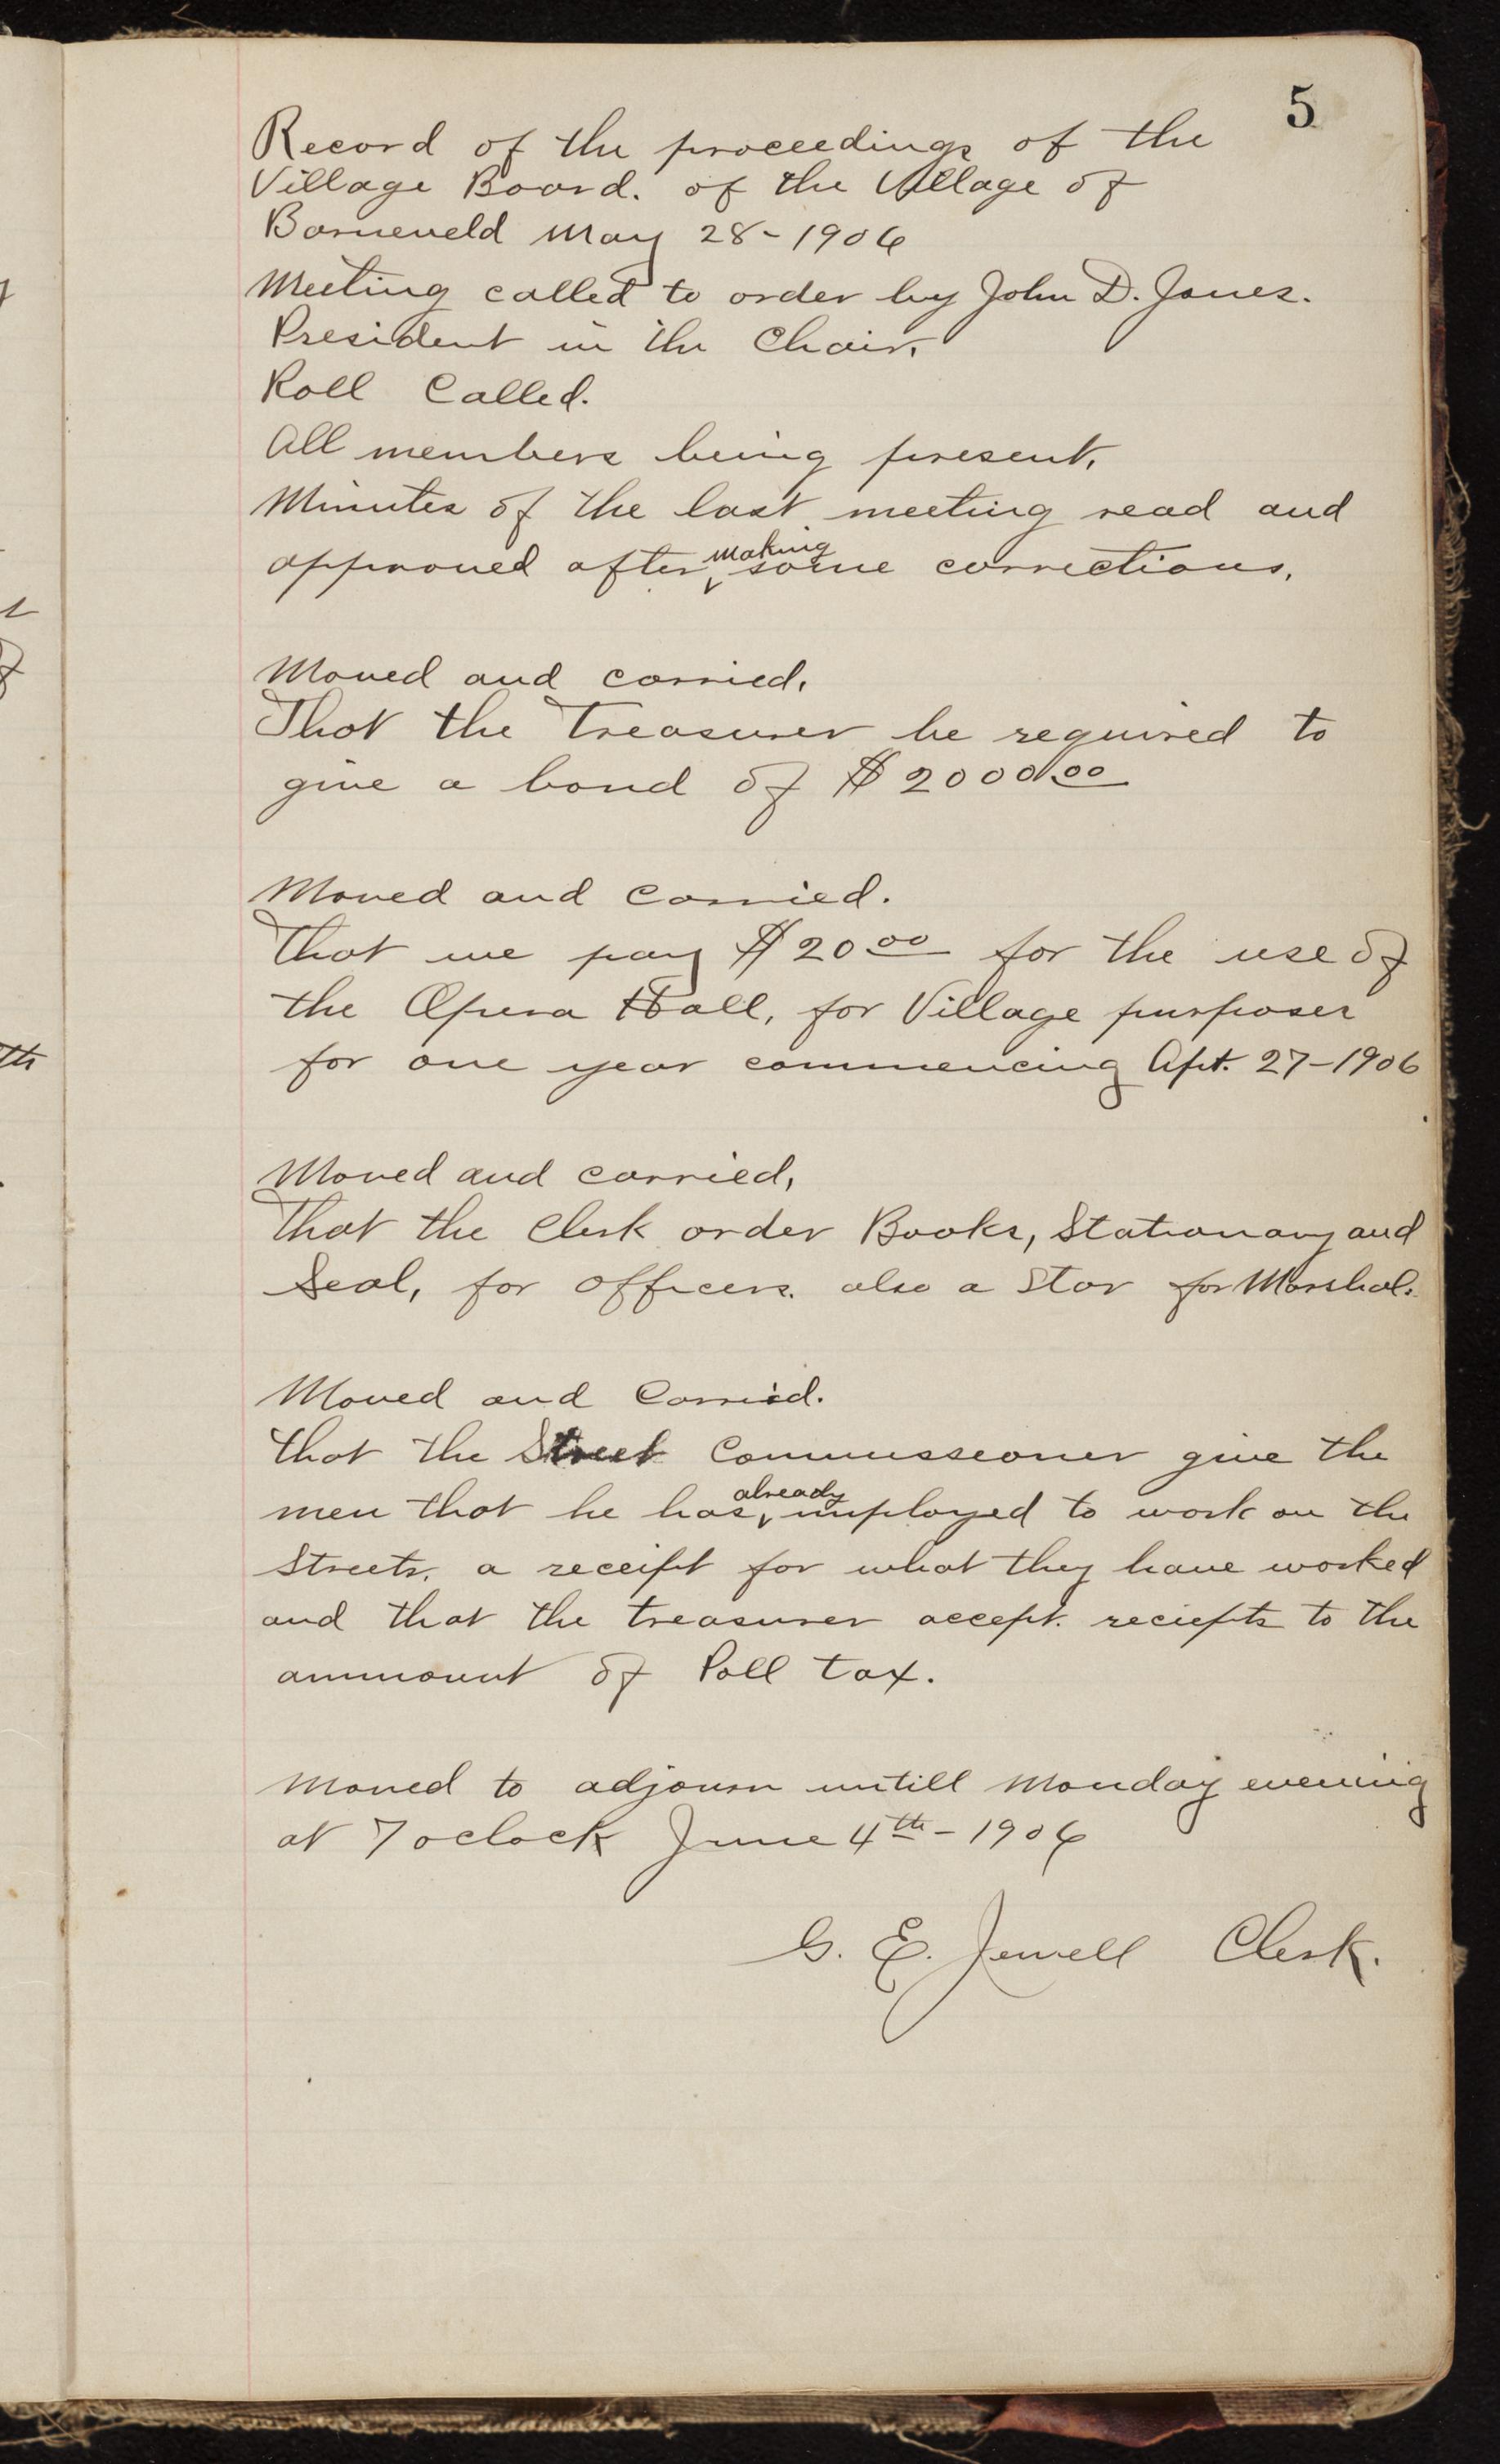 5
Record of the proceedings of the
Village Board. of the Village of
Barneveld May 28-1906
Meeting called to order by John D. Jones.
President in the Chair.
Roll Called.
All members being present,
Minutes of the last meeting read and
approved after making some corrections.
Moved and carried,
That the Treasurer be required to
give a bond of $2000.00
Moved and Carried.
That we pay $20 00 for the use of
the Opera Hall, for Village purposes
for one year commencing Apr. 27-1906
Moved and carried,
That the Clerk order Books, Stationary and
Seal, for officers. also a Star for Marshal.
Moved and Carried.
That the Street Commisseoner give the
men that he has already imployed to work on the
Streets. a receipt for what they have worked
and that the treasurer accept. reciepts to the
ammount of Poll tax.
Moved to adjourn untill Monday evening
at 7 oclock June 4th-1906
G. E. Jewell Clerk.